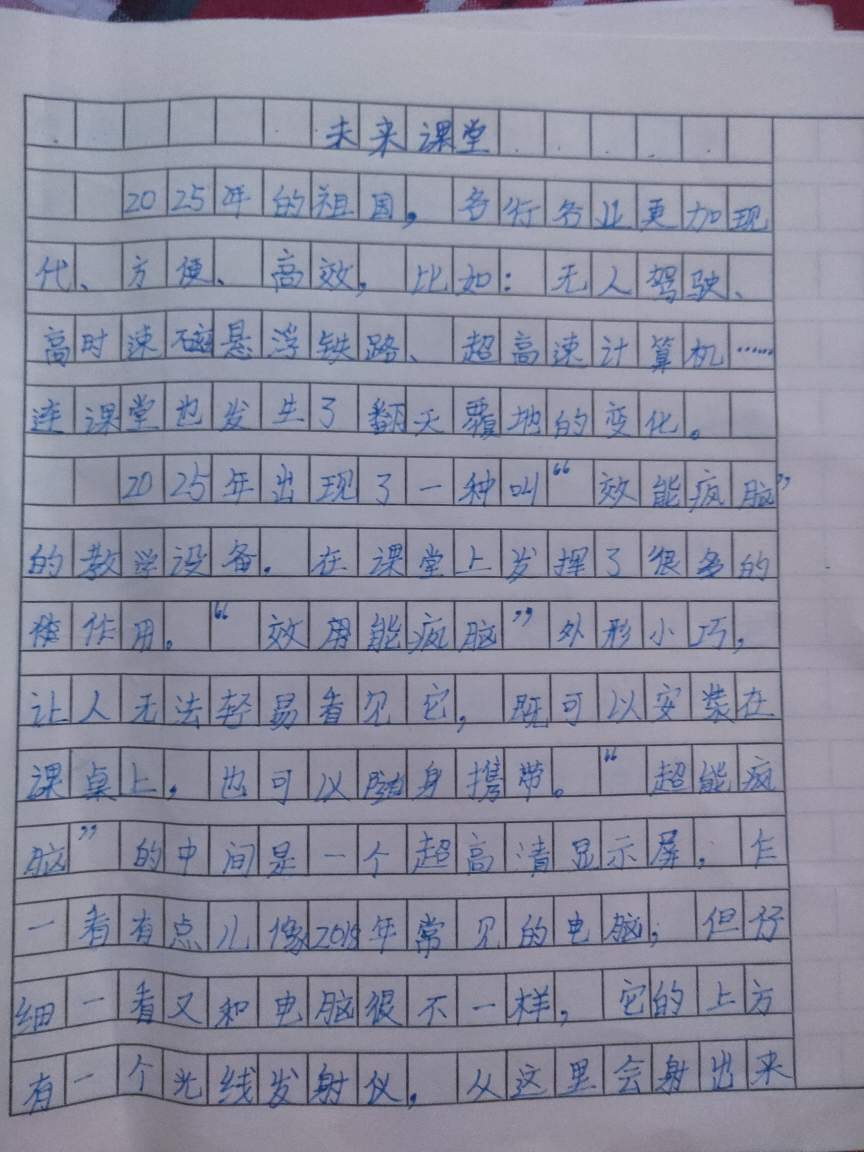 未来课堂
2025年的祖国，各行各业更加现
代、方便、高效，比如：无人驾驶、
高时速磁悬浮铁路、超高速计算机……
连课堂也发生了翻天覆地的变化。
2025年出现了一种叫“效能疯脑”
的教学设备。在课堂上发挥了很多的
作用。“效能疯脑”外形小巧，
让人无法轻易看见它，既可以安装在
课桌上，也可以随身携带。“超能疯
脑”的中间是一个超高清显示屏，乍
一看有点儿像2018年常见的电脑，但仔
细一看又和电脑很不一样，它的上方
有一个光线发射仪，从这里会射出来